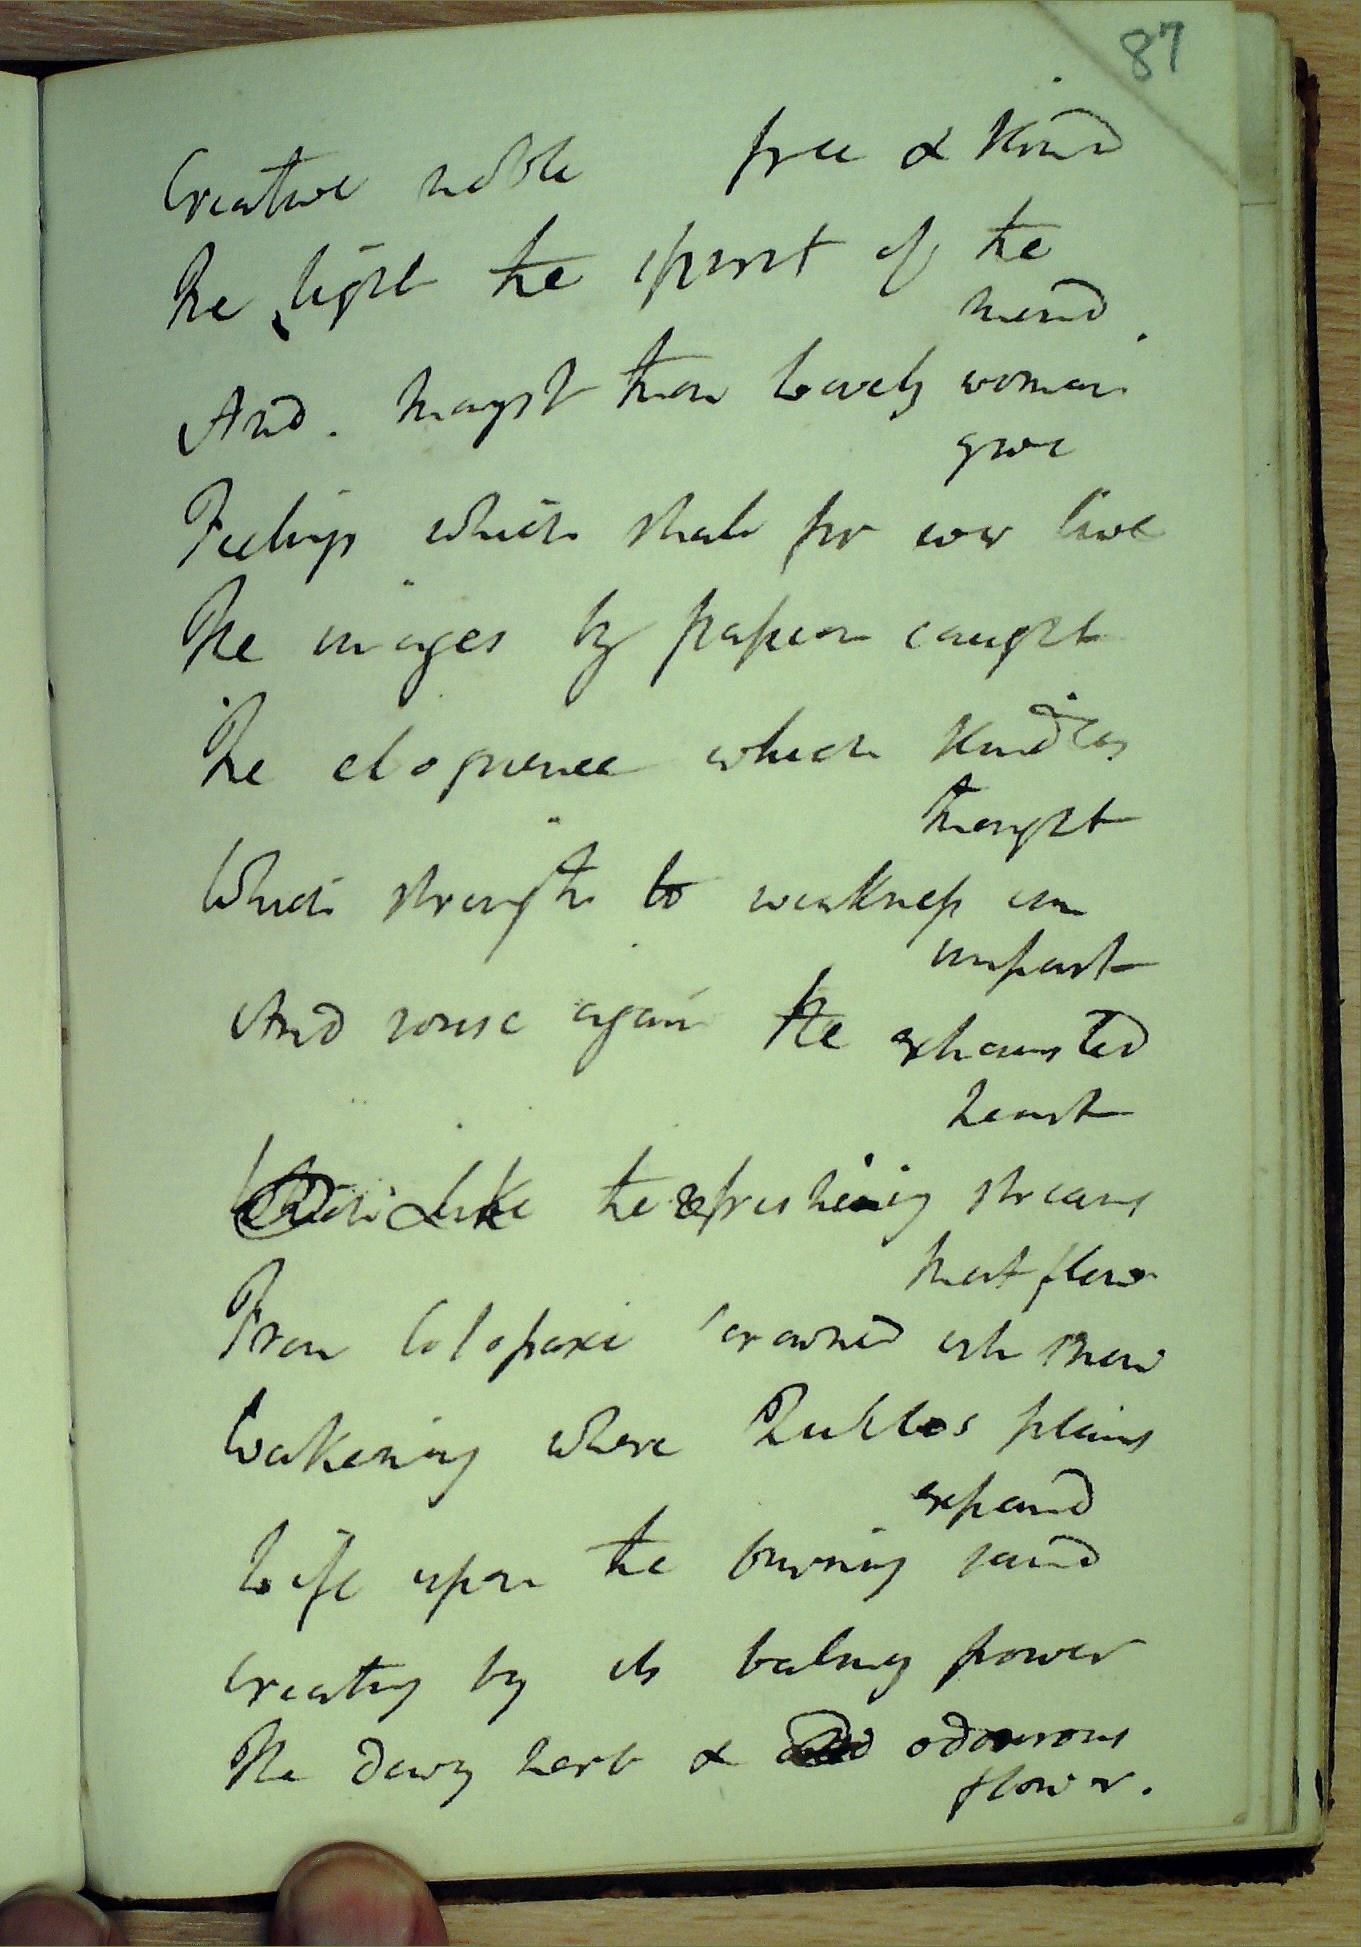 87
Creative noble free & kind
The light the spirit of the
mind.
And. mayst thou lovely woman
give
Feelings which shall for ever live
The images by passion caught
The eloquence which kindles
thought
Which strength to weakness can
impart
And rouse again the exhausted
heart
Like the refreshing streams
that flow
From Cotopaxi crowned with snow
Wakening where Pueblos plains
expand
Life upon the burning sand
Creating by its balmy power
The dewy herb & odourous
flower.